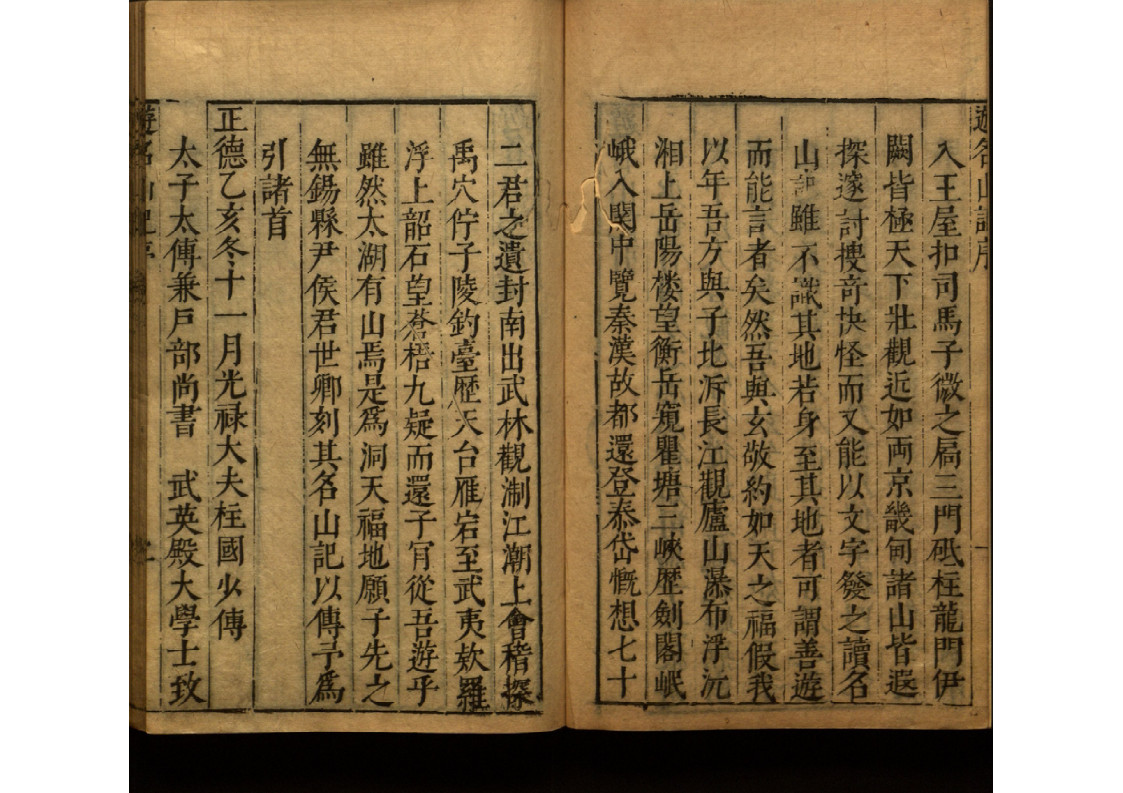 遊名山記序
入王屋扣司馬子微之扃三門砥柱龍門伊
闕皆極天下壯觀近如両京畿甸諸山皆遐
探邃討搜竒抉怪而又能以文字發之讀名
山記雖不識其地若身至其地者可謂善遊
而能言者矣然吾與玄敬約如天之福假我
以年吾方與子北泝長江觀廬山瀑布浮沅
湘上岳陽楼望衡岳窺瞿塘三峽歷劍閣岷
峨入関中覽秦漢故都還登泰岱慨想七十
二君之遺封南出武林觀淛江潮上會稽探
禹穴佇子陵釣臺歷天台雁宕至武夷欸羅
浮上韶石望蒼梧九疑而還子肎從吾遊乎
雖然太湖有山焉是為洞天福地願子先之
無錫縣尹侯君世卿刻其名山記以傳予為
引諸首
正德乙亥冬十一月光禄大夫柱國少傅
太子太傅兼戶部尚書 武英殿大學士致
遊名山記序